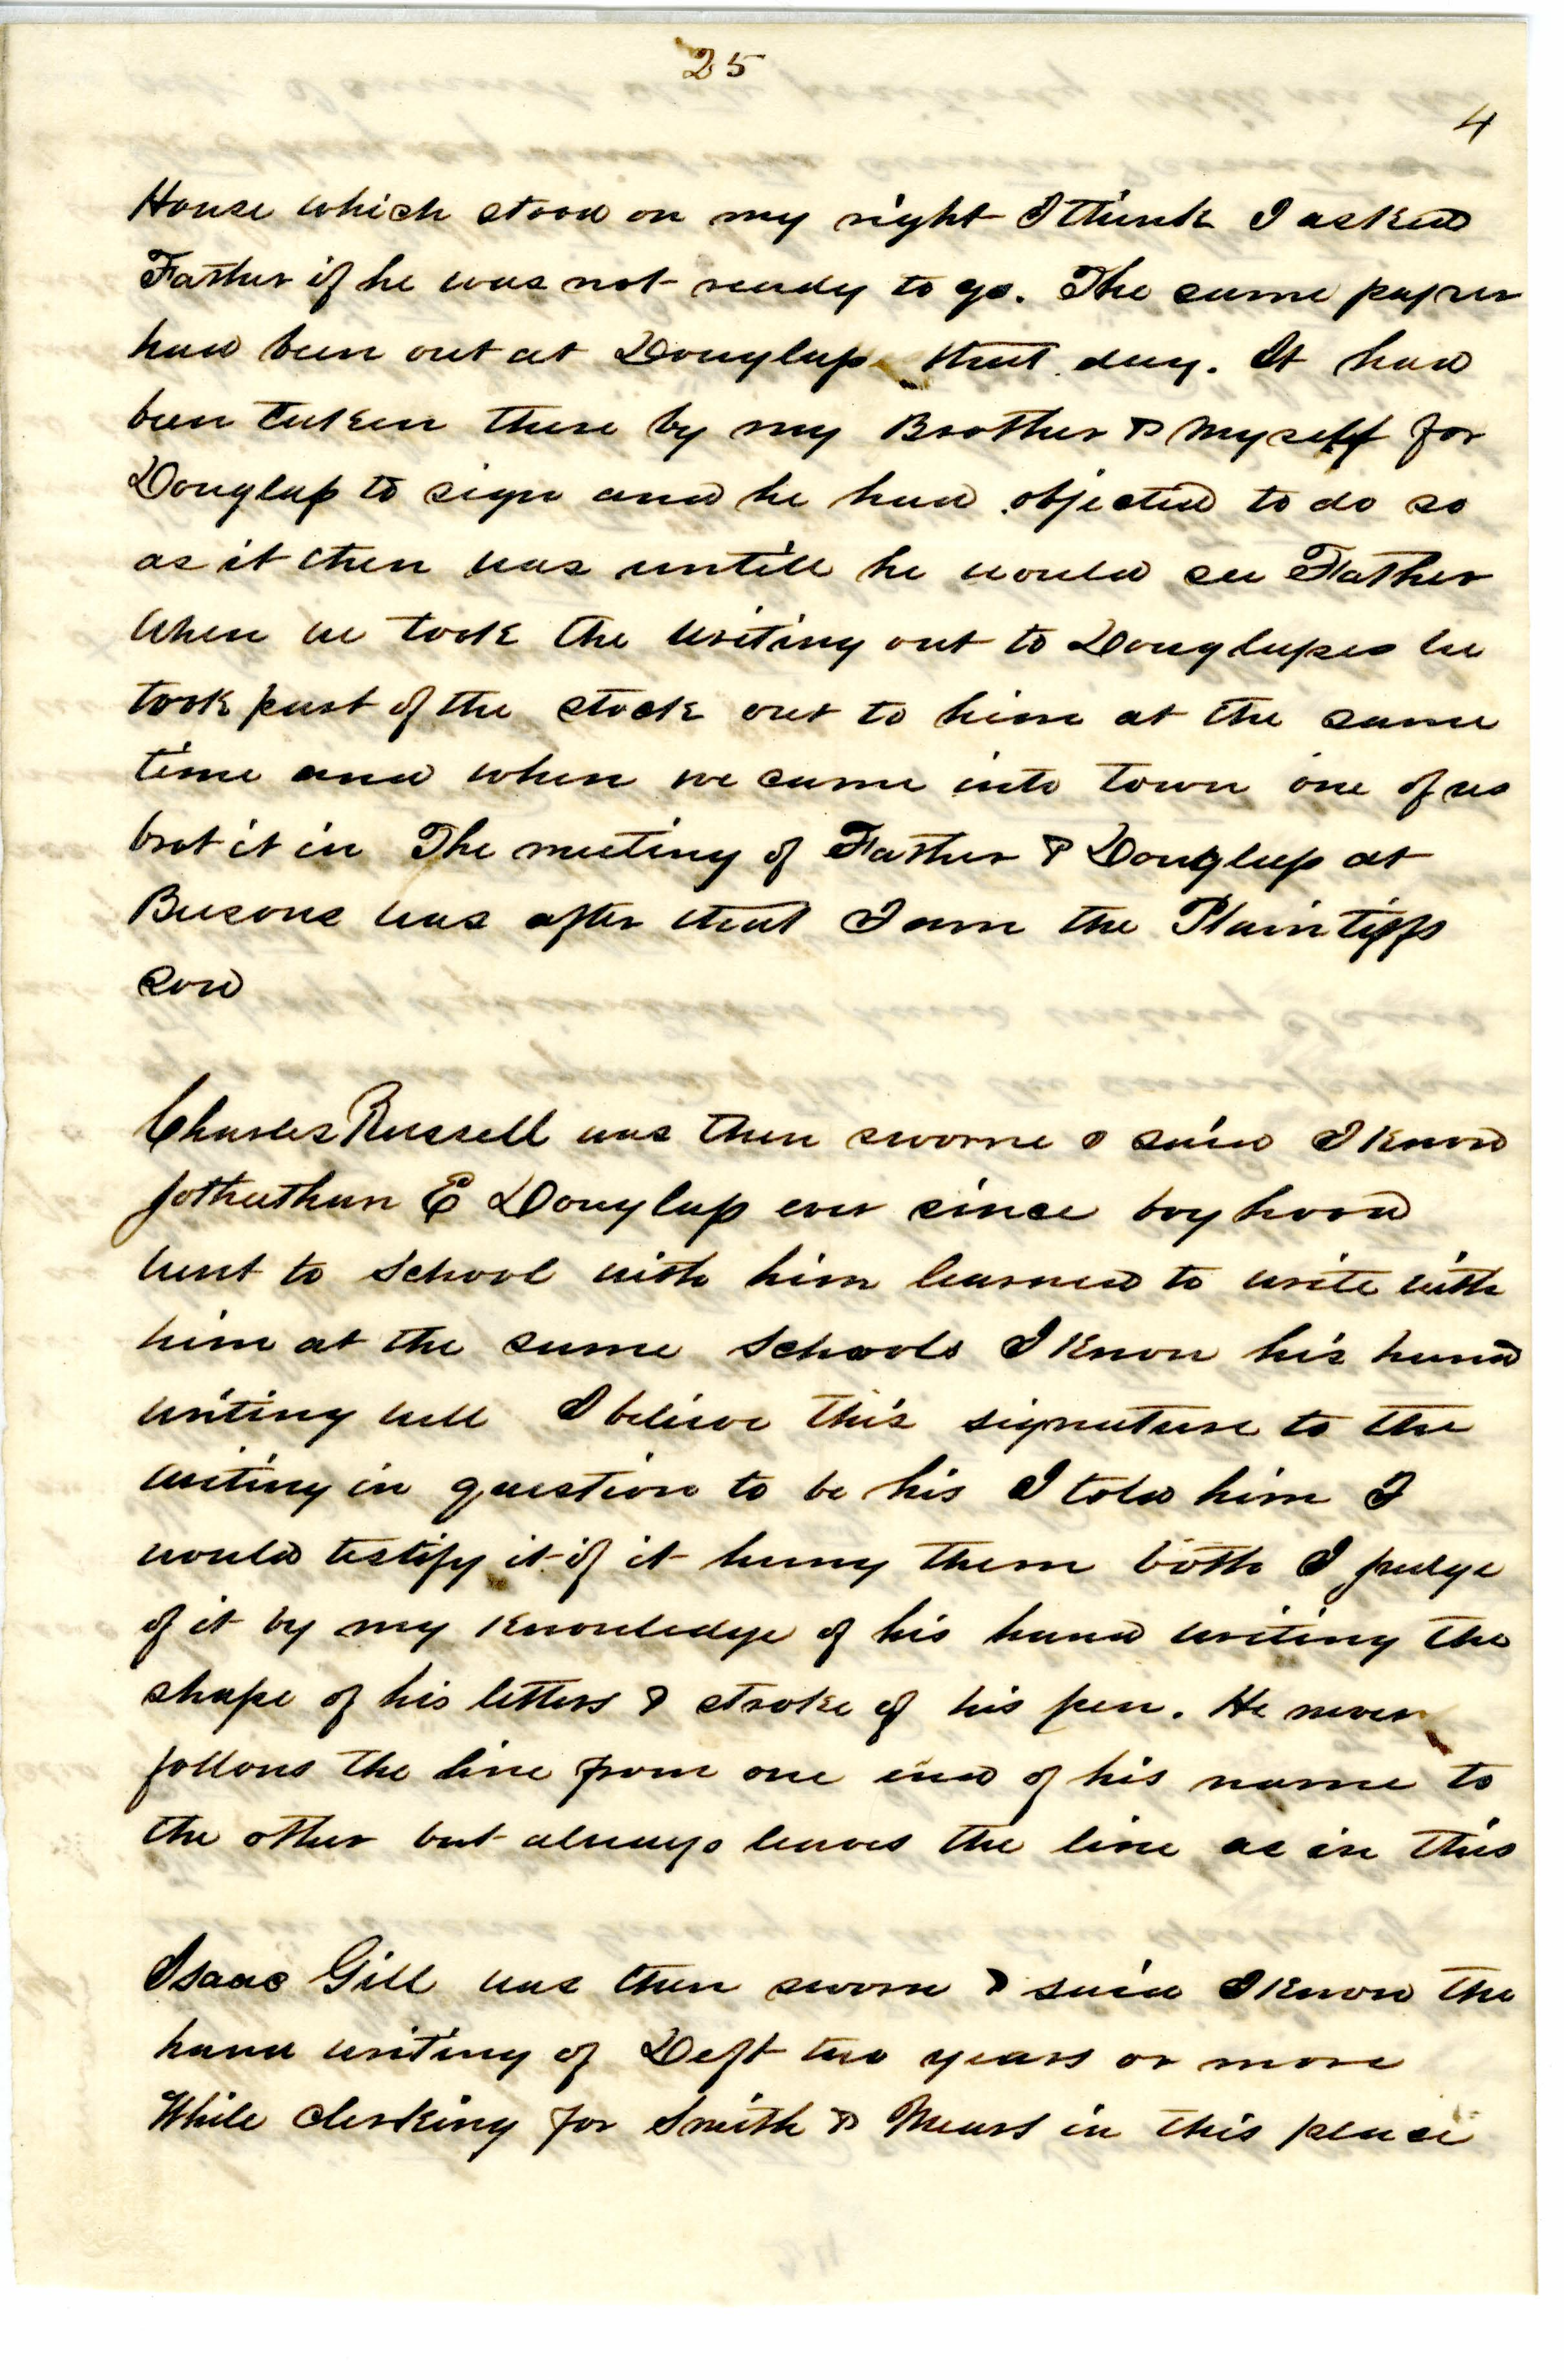 25
4
House which stood on my right I think I asked
Father if he was not ready to go. The same paper
had been out at Douglass that day. It had
been taken there by my Brother & Myself for
Douglass to sign and he had objected to do so
as it then was untill he would see Father
When we took the writing out to Douglasses we
took part of the stock out to him at the same
time and when we came into town one of us
brot it in The meeting of Father & Douglass at
Beesons was after that I am the Plaintiffs
son
Charles Russell was then sworne & said I know
E Douglass ever since boyhood
went to School with him learned to write with
him at the same Schools I know his hand
writing well I believe this signature to the
writing in question to be his I told him I
would testify it if it hung them both I judge
of it by my knowledge of his hand writing the
shape of his letters & stroke of his pen. He never
follows the line from one end of his name to
the other but always leaves the line as in this
Isaac Gill was then sworn & said I know the
hand writing of Deft two years or more
While clerking for Smith & Mears in this place